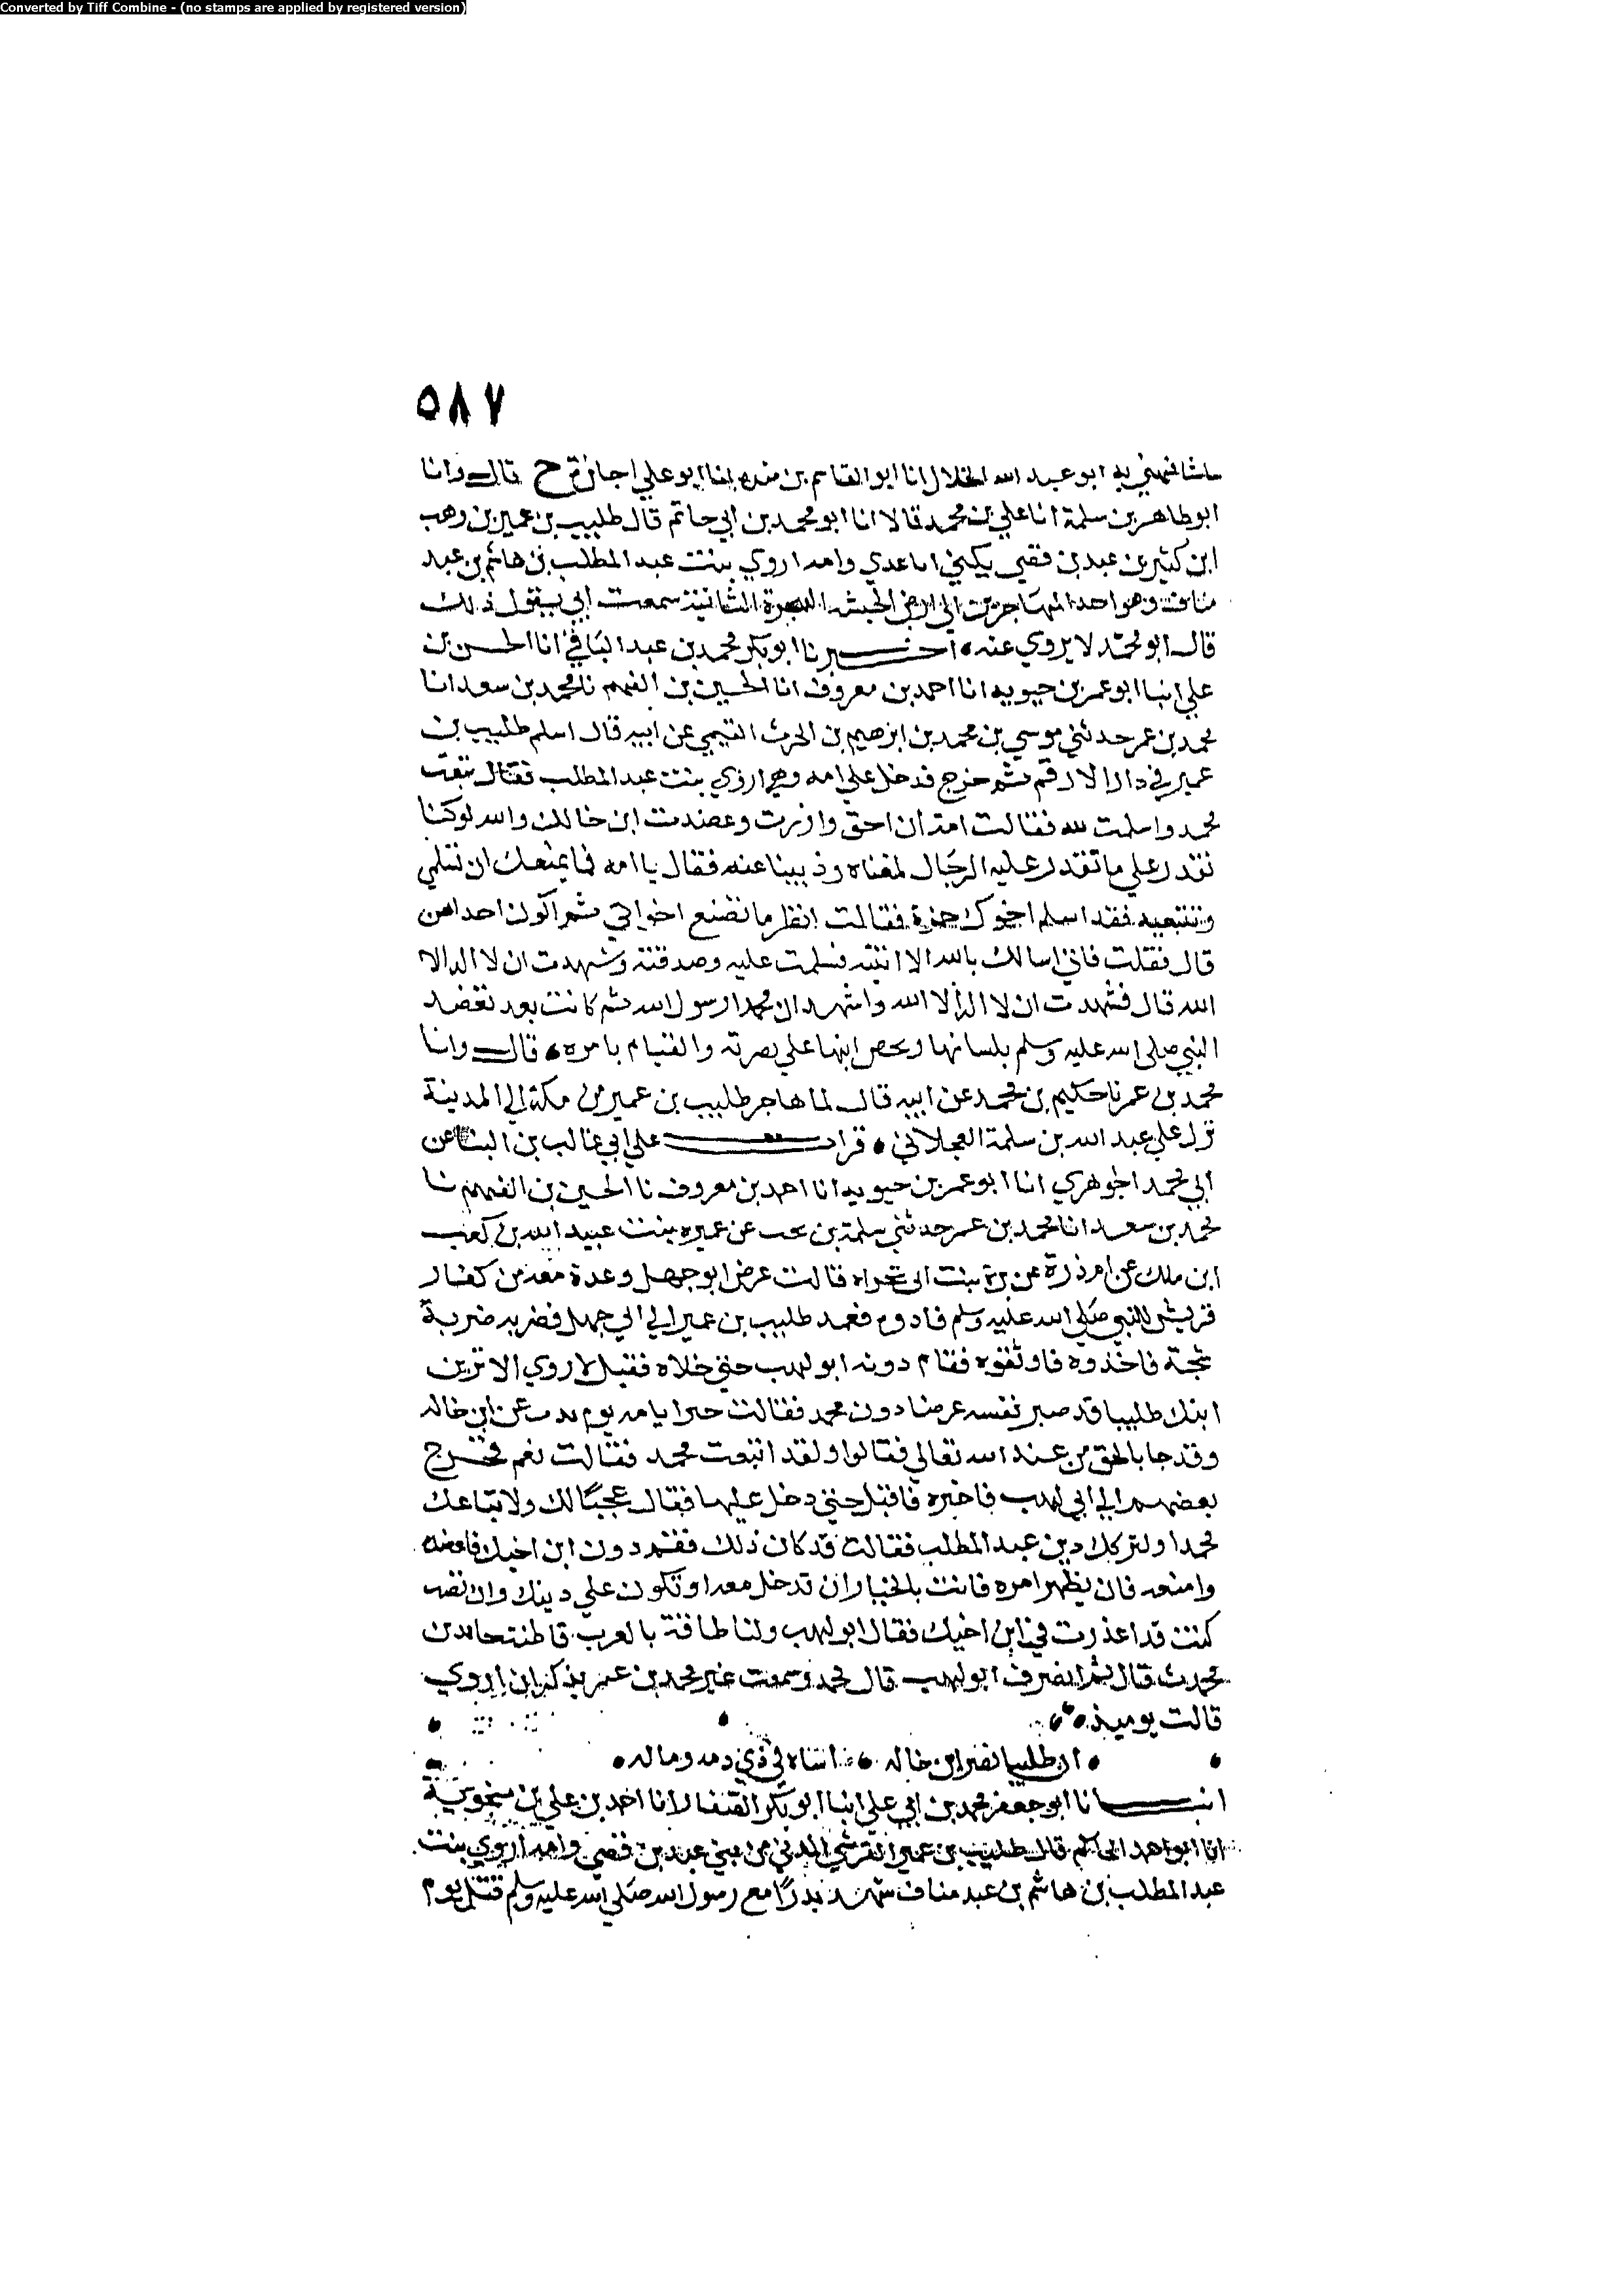 Converted by Tiff Combine - (no stamps are applied by registered version)
٥٨٧
ابو عبد الله الخلال انا ابو القاسم بن منده ابنا ابو علي اجازة ح قال وانا
ابو طاهر بن سلمة انا علي بن محمد قالا انا ابو محمد بن ابي حاتم قال طليب بن عمير بن وهب
ابن كثير بن عبد بن قصي يكني ابا عدي وامه اروي بنت عبد المطلب بن هاشم بن عبد
مناف وهو احد المهاجرين الي ارض الحبشه الهجرة الثانية سمعت ابي يقول ذلك
قال ابو محمد لا يروي عنه اخبرنا ابو بكر محمد بن عبد الباقي انا الحسن بن
علي ابنا ابو عمر بن حيويه انا احمد بن معروف انا الحسين بن الفهم نا محمد بن سعد انا
محمد بن عمر حدثني موسي بن محمد بن ابرهيم بن الحرث التيمي عن ابيه قال اسلم طليب بن
عمير في دار الارقم ثم خرج فدخل علي امه وهي اروي بنت عبد المطلب فقال تبعت
محمد واسلمت لله فقالت امه ان احق وازرت وعضدت ابن خالك والله لو كنا
نقدر علي ما تقدر عليه الرجال لمنعناه وذببنا عنه فقال يا امه فما يمنعك ان تسلمي
وتتبعيه فقد اسلم اخوك حمزة فقالت انظر ما تصنع اخواتي ثم اكون احداهن
قال فقلت فاني اسالك بالله الا اتيته فسلمت عليه وصدقته وشهدت ان لا اله الا
الله قال فشهدت ان لا اله الا الله واشهد ان محمدا رسول الله ثم كانت بعد تعضد
النبي صلي الله عليه وسلم بلسانها وتحض ابنها علي نصرته والقيام بامره قال وانا
محمد بن عمر نا حكيم بن محمد عن ابيه قال لما هاجر طليب بن عمير من مكة الي المدينة
نزل علي عبد الله بن سلمة العجلاني قرات علي ابي غالب بن البنا عن
ابي محمد الجوهري انا ابو عمر بن حيويه انا احمد بن معروف نا الحسين بن الفهم نا
محمد بن سعد انا محمد بن عمر حدثني سلمة بن بخت عن عميره بنت عبيد الله بن كعب
ابن ملك عن ام ذرة عن برة بنت ابي تجراه قالت عرض ابو جهل وعدة معه من كفار
قريش للنبي صلي الله عليه وسلم فاذوه فعمد طليب بن عمير الي ابي جهل فضربه ضربة
شجة فاخذوه فاوثقوه فقام دونه ابو لهب حتي خلاه فقيل لاروي الا ترين
ابنك طليبا قد صبر نفسه عرضا دون محمد فقالت خير ايامه يوم يذب عن ابن خاله
وقد جا بالحق من عند الله تعالي فقالوا ولقد اتبعت محمد فقالت نعم فخرج
بعضهم الي ابي لهب فاخبره فاقبل حتي دخل عليها فقال عجبا لك ولاتباعك
محمدا ولتركك دين عبد المطلب فقالت قد كان ذلك فقم دون ابن اخيك فاعضده
وامنعه فان يظهر امره فانت بالخيار ان تدخل معه او تكون علي دينك وان نصب
كنت قد اعذرت في ابن اخيك فقال ابو لهب ولنا طاقة بالعرب قاطبة
محدث قال ثم انصرف ابو لهب قال محمد وسمعت غير محمد بن عمر يذكر ان اروي
قالت يوميذ
ان طليبا نصر ابن خاله اساه في ذي دمه وماله
انبانا ابو جعفر محمد بن ابي علي ابنا ابو بكر الصفار انا احمد بن علي بن منجويه
انا ابو احمد الحاكم قال طليب بن عمير القرشي المدني من بني عبد بن قصي وامه اروي بنت
عبد المطلب بن هاشم بن عبد مناف شهد بدرا مع رسول الله صلي الله عليه وسلم قتل يوم